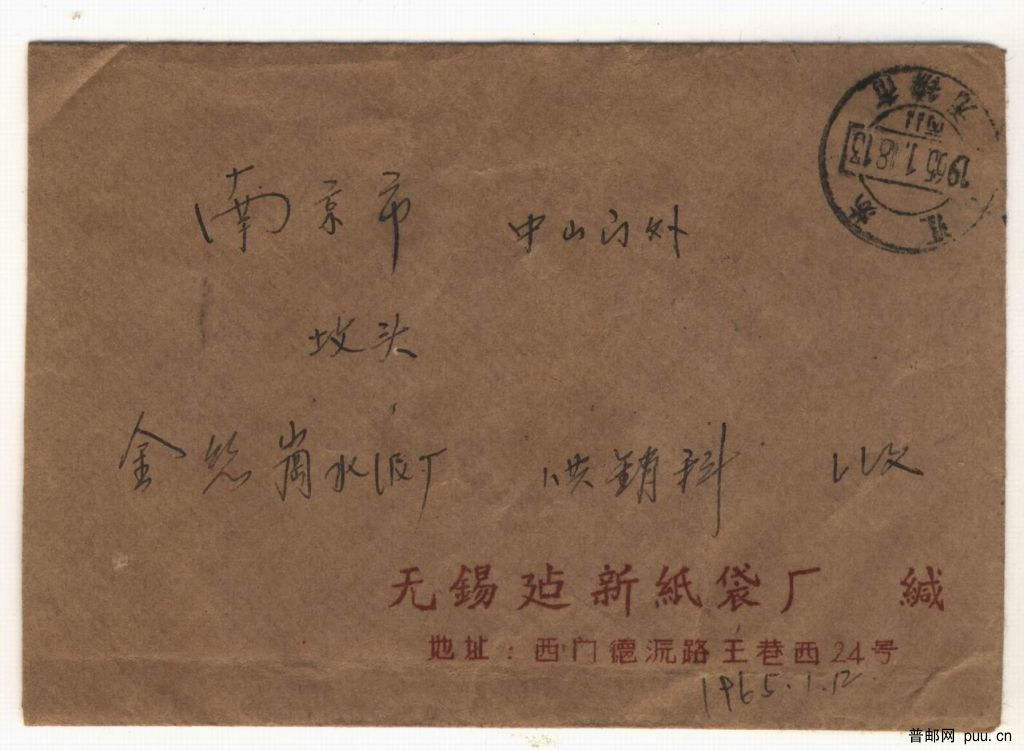 江苏
无锡市
1965.1.18.13
南京市 中山门外
坡头
金丝岗水泥厂 供銷科 收
无錫 新紙袋厂 緘
地址：西门德沅路王巷西24号
1965.1.12.
普邮网 puu.cn